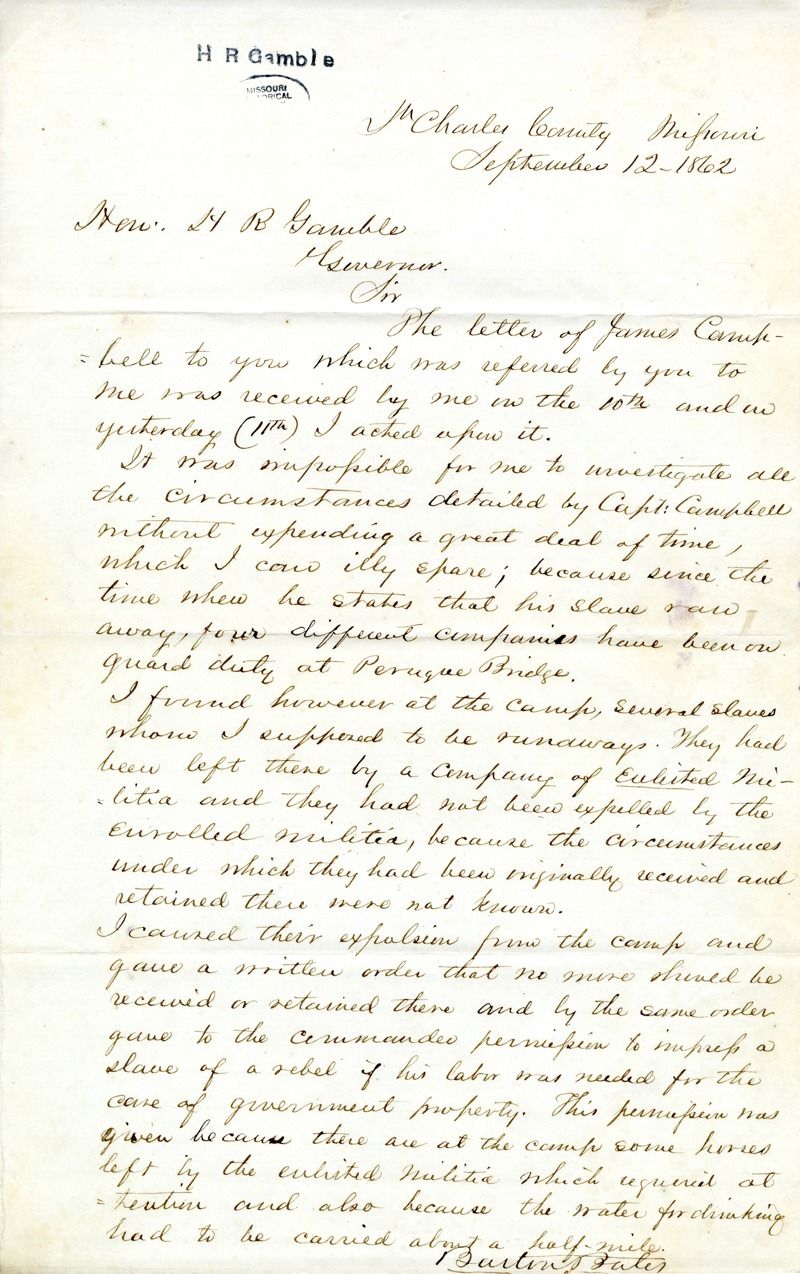 H R Gamble
MISSOURI
ORICAL
St Charles County Missouri
September 12 - 1862
Hon: H R Gamble
Governor.
Sir
The letter of James Camp-
=bell to you which was referred by you to
me was received by me on the 10th and on
yesterday (11th) I acted upon it.
It was impossible for me to investigate all
the circumstances detailed by Capt: Campbell
without expending a great deal of time,
which I can illy spare; because since the
time when he states that his slave ran-
away, four different companies have been on
guard duty at Peruque Bridge.
I found however at the camp, several slaves
whom I supposed to be runaways. They had
been left there by a company of Enlisted Mi-
=litia and they had not been expelled by the
enrolled militia, because the circumstances
under which they had been originally received and
retained there were not known.
I caused their expulsion from the camp and
gave a written order that no more should be
received or retained there and by the same order
gave to the commander permission to impress a
slave of a rebel if his labor was needed for the
care of government property. This permission was
given because there are at the camp some horses
left by the enlisted militia which required at
=tention and also because the water for drinking
had to be carried about a half-mile.
Barton Bates